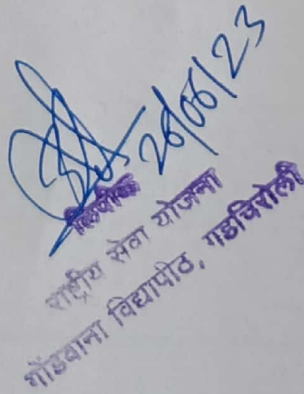 26/06/23
लिपीक
राष्ट्रीय सेवा योजना
गोंडवाना विद्यापीठ, गडचिरोली